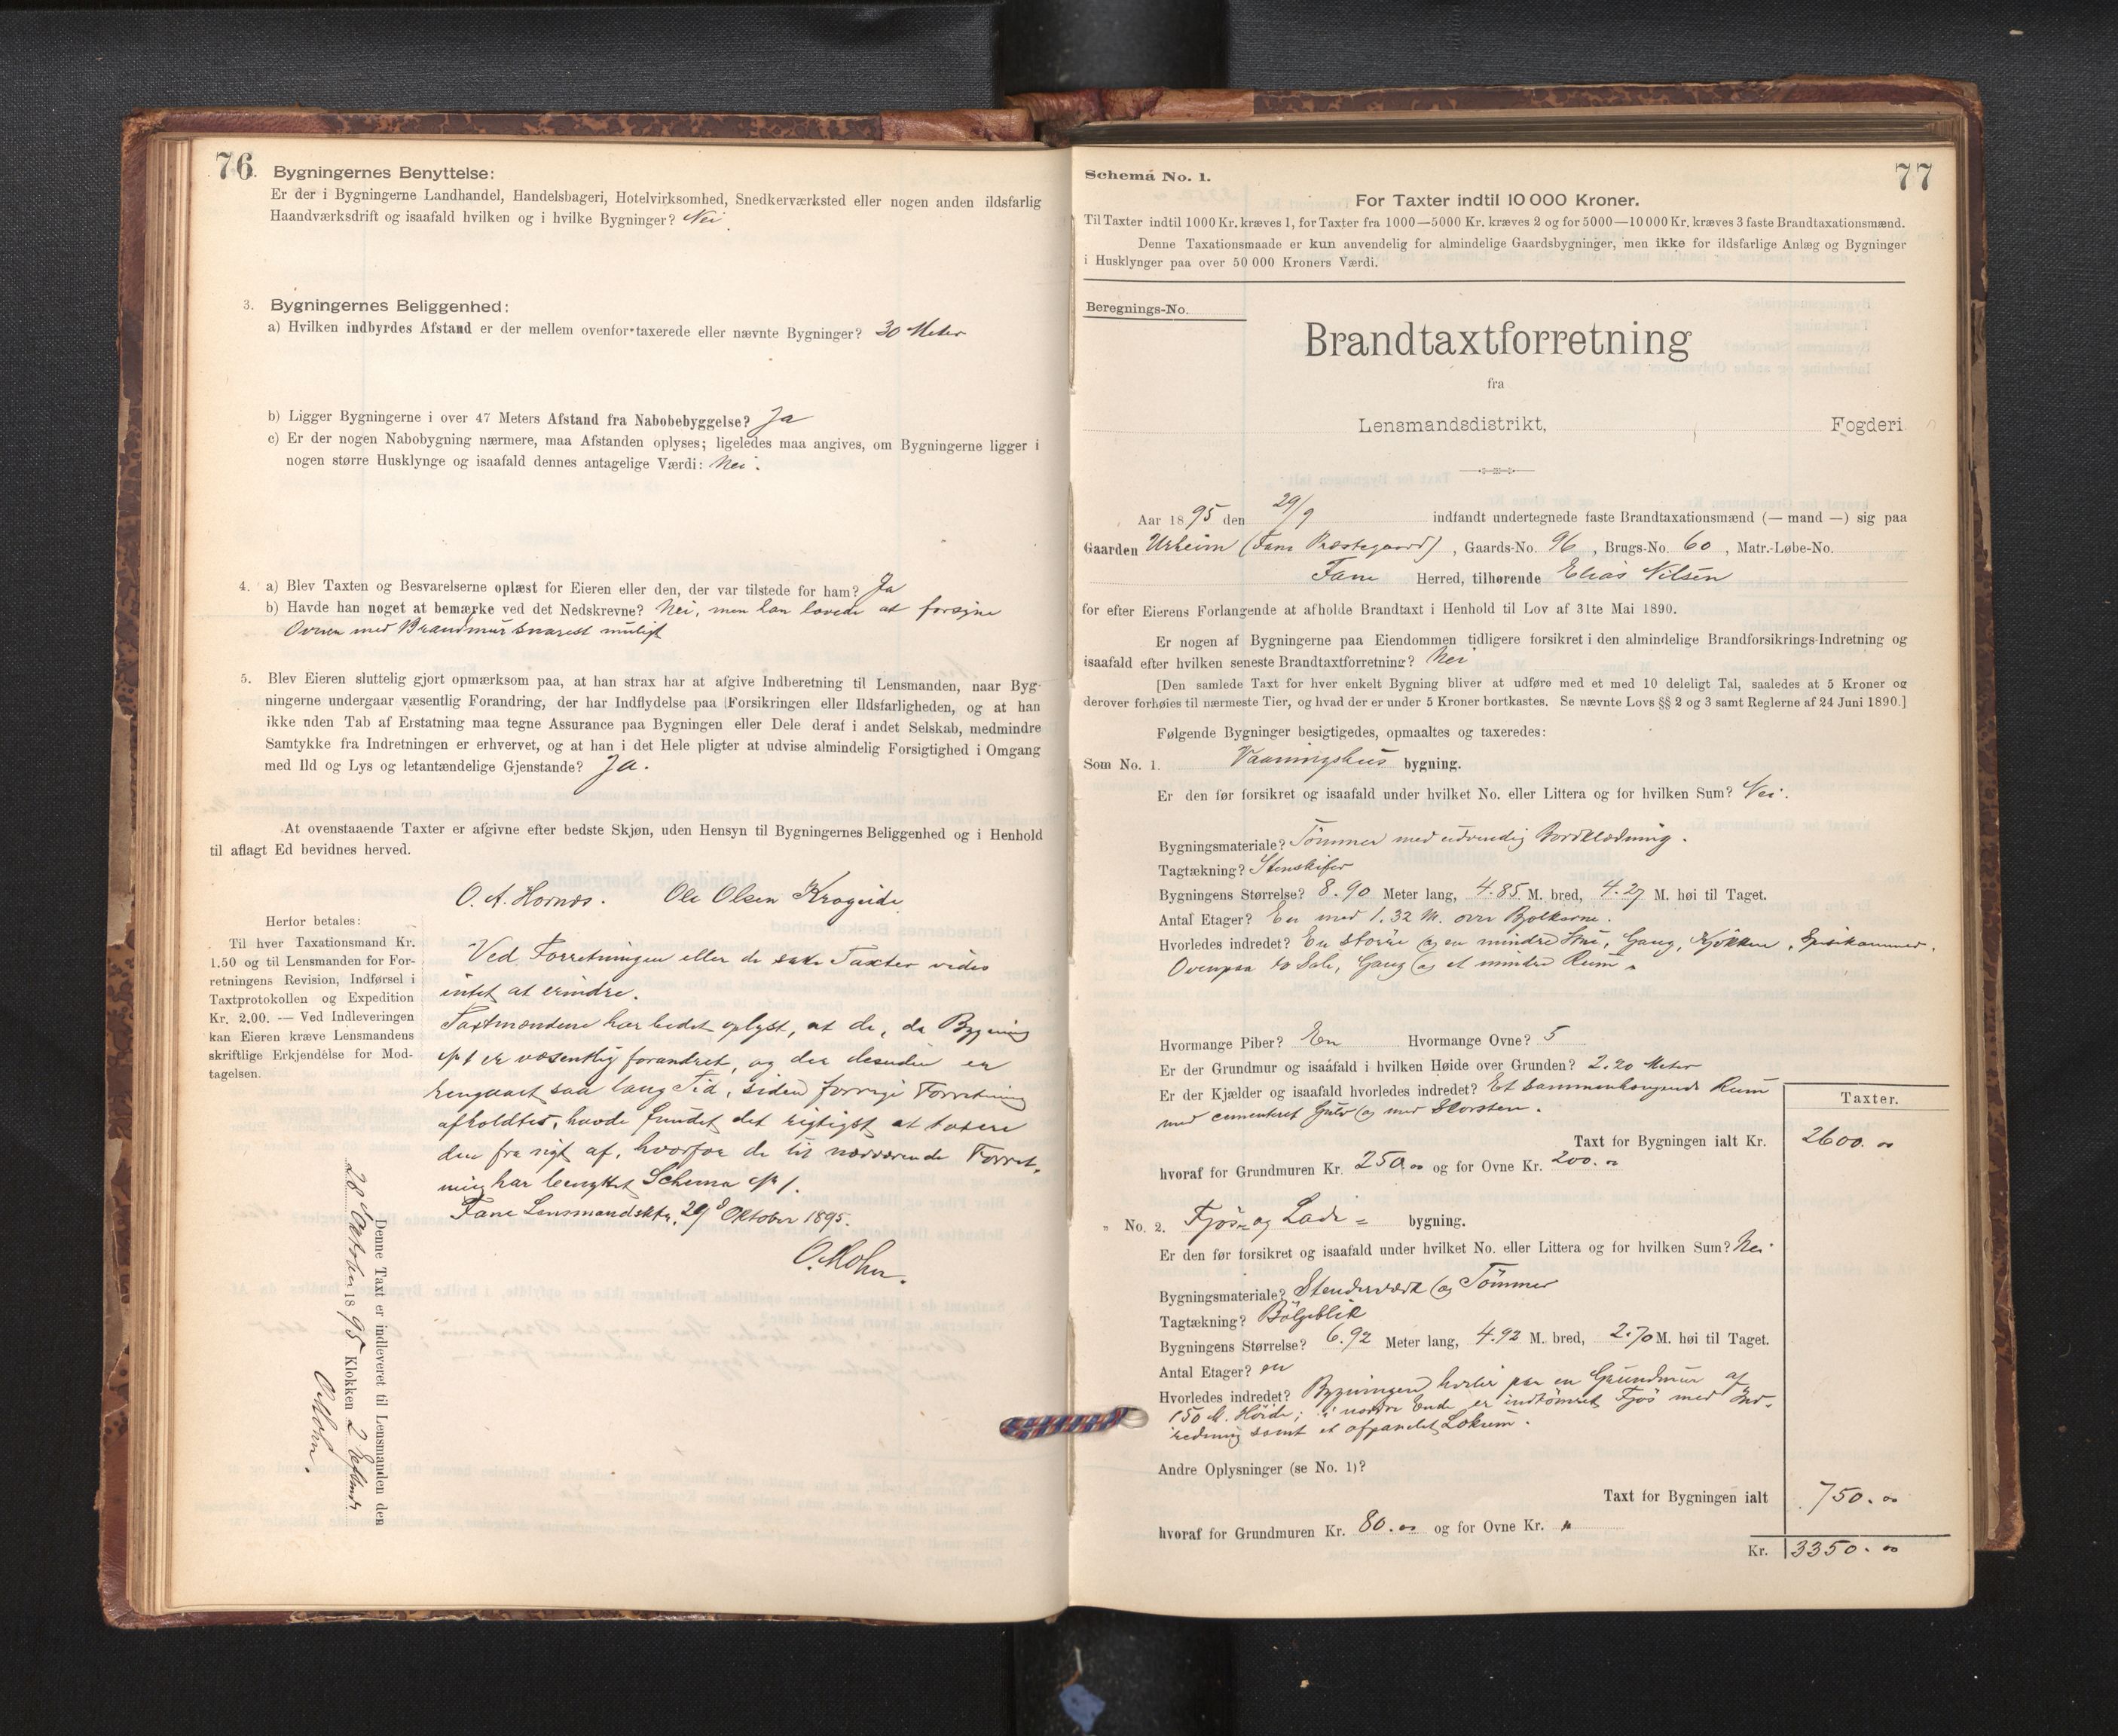 76.
Bygningernes Benyttelse:
Er der i Bygningerne Landhandel, Handelsbageri, Hotelvirksomhed, Snedkerværksted eller nogen anden ildsfarlig
Haandværksdrift og isaafald hvilken og i hvilke Bygninger? Nei.
3. Bygningernes Beliggenhed:
a) Hvilken indbyrdes Afstand er der mellem ovenfor taxerede eller nævnte Bygninger? 30 Meter
b) Ligger Bygningerne i over 47 Meters Afstand fra Nabobebyggelse? Ja
c) Er der nogen Nabobygning nærmere, maa Afstanden oplyses; ligeledes maa angives, om Bygningerne ligger i
nogen større Husklynge og isaafald dennes antagelige Værdi: Nei.
4. a) Blev Taxten og Besvarelserne oplæst for Eieren eller den, der var tilstede for ham? Ja
b) Havde han noget at bemærke ved det Nedskrevne? Nei, men han lovede at forsyne
Ovnen med Brandmur snarest muligt
5. Blev Eieren sluttelig gjort opmærksom paa, at han strax har at afgive Indberetning til Lensmanden, naar Byg-
ningerne undergaar væsentlig Forandring, der har Indflydelse paa Forsikringen eller Ildsfarligheden, og at han
ikke uden Tab af Erstatning maa tegne Assurance paa Bygningen eller Dele deraf i andet Selskab, medmindre
Samtykke fra Indretningen er erhvervet, og at han i det Hele pligter at udvise almindelig Forsigtighed i Omgang
med Ild og Lys og letantændelige Gjenstande? Ja.
At ovenstaaende Taxter er afgivne efter bedste Skjøn, uden Hensyn til Bygningernes Beliggenhed og i Henhold
til aflagt Ed bevidnes herved.
O. A. Hornæs. Ole Olsen Krogeide
Herfor betales:
Til hver Taxationsmand Kr.
1.50 og til Lensmanden for For-
retningens Revision, Indførsel i
Taxtprotokollen og Expedition
Kr. 2.00. — Ved Indleveringen
kan Eieren kræve Lensmandens
skriftlige Erkjendelse for Mod-
tagelsen.
Ved Forretningen eller de satte Taxter vides
intet at erindre.
Taxtmændene har bedet oplyst, at de, da Bygning
No 1 er væsentlig forandret, og der desuden er
hengaaet saa lang Tid, siden forrige Forretning
afholdtes, havde fundet det rigtigst at taxere
den fra nyt af, hvorfor de til nærværende Forret-
ning har benyttet Schema No 1.
Fane Lensmandsktr, 29 Oktober 1895.
O. Mohn.
Denne Taxt er indleveret til Lensmanden den
28 Oktober 1895 Klokken 2 Eftmd.
O. Mohn.
77
Schema No. 1.
For Taxter indtil 10 000 Kroner.
Til Taxter indtil 1000 Kr. kræves 1, for Taxter fra 1000—5000 Kr. kræves 2 og for 5000—10 000 Kr. kræves 3 faste Brandtaxationsmænd.
Denne Taxationsmaade er kun anvendelig for almindelige Gaardsbygninger, men ikke for ildsfarlige Anlæg og Bygninger
i Husklynger paa over 50 000 Kroners Værdi.
Beregnings-No.
Brandtaxtforretning
fra
Lensmandsdistrikt, Fogderi
Aar 1895 den 29/9 indfandt undertegnede faste Brandtaxationsmænd (— mand —) sig paa
Gaarden Urheim (Fane Præstegaard), Gaards-No. 96, Brugs-No. 60, Matr.-Løbe-No.
Fane Herred, tilhørende Elias Nilsen
for efter Eierens Forlangende at afholde Brandtaxt i Henhold til Lov af 31te Mai 1890.
Er nogen af Bygningerne paa Eiendommen tidligere forsikret i den almindelige Brandforsikrings-Indretning og
isaafald efter hvilken seneste Brandtaxtforretning? Nei
[Den samlede Taxt for hver enkelt Bygning bliver at udføre med et med 10 deleligt Tal, saaledes at 5 Kroner og
derover forhøies til nærmeste Tier, og hvad der er under 5 Kroner bortkastes. Se nævnte Lovs §§ 2 og 3 samt Reglerne af 24 Juni 1890.]
Følgende Bygninger besigtigedes, opmaaltes og taxeredes:
Som No. 1. Vaaningshus bygning.
Er den før forsikret og isaafald under hvilket No. eller Littera og for hvilken Sum? Nei.
Bygningsmateriale? Tømmer med udvendig Bordklædning.
Tagtækning? Stenskifer
Bygningens Størrelse? 8.90 Meter lang, 4.85 M. bred, 4.27 M. høi til Taget.
Antal Etager? En med 1.32 M. over Bjelkerne.
Hvorledes indredet? En større og en mindre Stue, Gang, Kjøkken, Spisekammer.
Ovenpaa to Sale, Gang og et mindre Rum
Hvormange Piber? En Hvormange Ovne? 5
Er der Grundmur og isaafald i hvilken Høide over Grunden? 2.20 Meter
Er der Kjælder og isaafald hvorledes indredet? Et sammenhængende Rum
med cementeret Gulv og med Skorsten.
Taxter.
Taxt for Bygningen ialt Kr. 2600. 00
hvoraf for Grundmuren Kr. 250.00 og for Ovne Kr. 200. 00
" No. 2. Fjøs- og Lade- bygning.
Er den før forsikret og isaafald under hvilket No. eller Littera og for hvilken Sum? Nei
Bygningsmateriale? Stenderværk og Tømmer
Tagtækning? Bølgeblik
Bygningens Størrelse? 6.92 Meter lang, 4.92 M. bred, 2.70 M. høi til Taget.
Antal Etager? en
Hvorledes indredet? Bygningen hviler paa en Grundmur af
1.50 M. Høide; i nordre Ende er indtømret Fjøs med Ind-
redning samt et afpanelet Lokum.
Andre Oplysninger (se No. 1)?
Taxt for Bygningen ialt 750. 00
hvoraf for Grundmuren Kr. 80. 00 og for Ovne Kr. "
Kr. 3350. 00